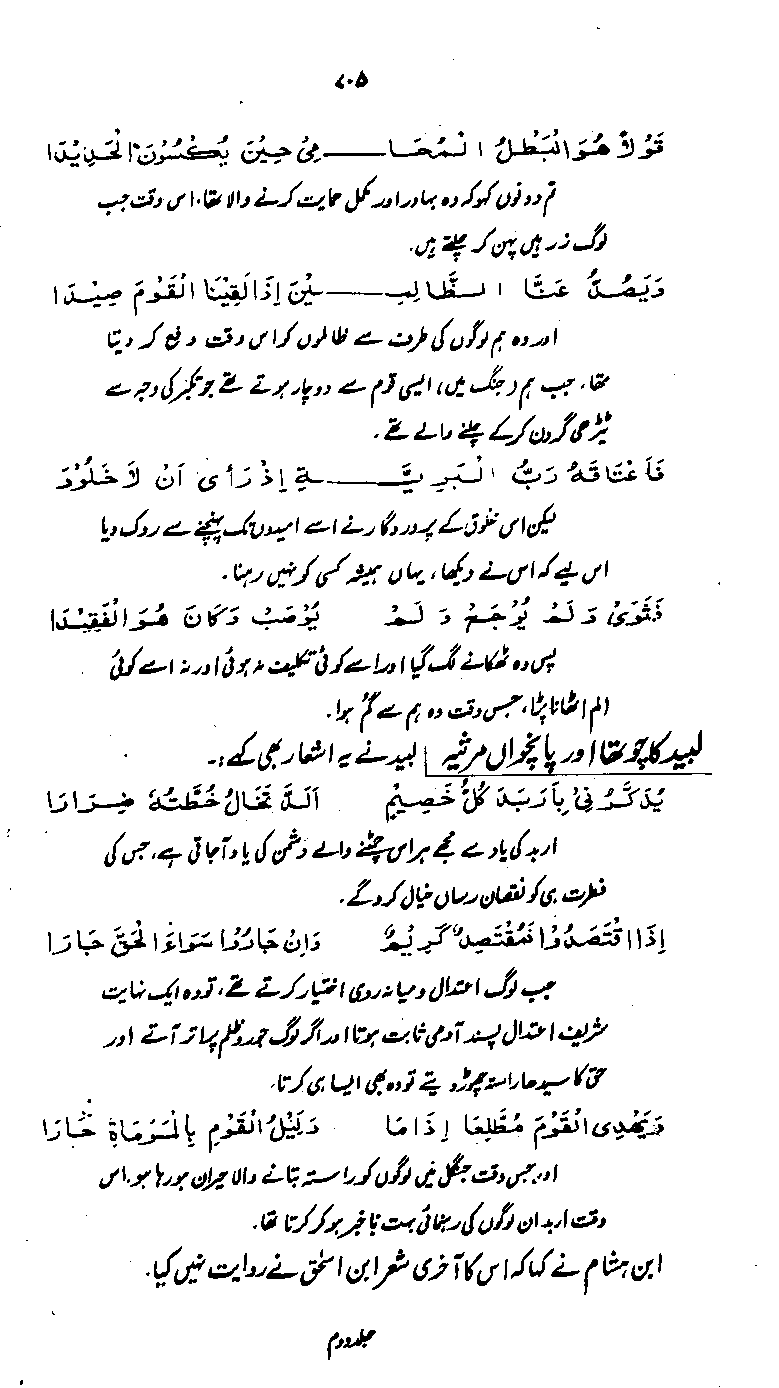 ۷۰۵
قُوْلَا هُوَ الْبَطَلُ الْمُحَا ـــــ مِیْ حِیْنَ یُکْسَوْنَ الْحَدِیْدَا
تم دونوں کہو کہ وہ بہادر اور مکمل حمایت کرنے والا تھا، اس وقت جب
لوگ زرہیں پہن کر چلتے ہیں۔
وَیَصُدُّ عَنَّا الظَّالِمِ ـــــ یْنَ إِذَا لَقِیْنَا الْقَوْمَ صِیْدَا
اور وہ ہم لوگوں کی طرف سے ظالموں کو اس وقت دفع کر دیتا
تھا، جب ہم (جنگ میں) ایسی قوم سے دوچار ہوتے تھے جو تکبر کی وجہ سے
ٹیڑھی گردن کر کے چلنے والے تھے۔
فَاعْتَاقَهُ رَبُّ الْبَرِیَّ ـــــ ةِ إِذْ رَأٰی أَنْ لَا خُلُوْدَ
لیکن اس مخلوق کے پروردگار نے اسے امیدوں تک پہنچنے سے روک دیا
اس لیے کہ اس نے دیکھا، یہاں ہمیشہ کسی کو نہیں رہنا۔
فَثَوٰی وَ لَمْ یُوْجَعْ وَ لَمْ یُوْصَبْ وَکَانَ هُوَ الْفَقِیْدَا
پس وہ ٹھکانے لگ گیا اور اسے کوئی تکلیف نہ ہوئی اور نہ اسے کوئی
الم اٹھانا پڑا، جس وقت وہ ہم سے گم ہوا۔
لبید کا چوتھا اور پانچواں مرثیہ لبید نے یہ اشعار بھی کہے:۔
یُذَکِّرُنِیْ بِأَرْبَدَ کُلُّ خَصِیْمٍ أَلَدَّ تَخَالُ خُطَّتَهُ ضِرَارَا
اربد کی یاد سے مجھے ہر اس چمٹنے والے دشمن کی یاد آجاتی ہے، جس کی
فطرت ہی کو نقصان رساں خیال کروگے۔
إِذَا اقْتَصَدُوْا فَمُقْتَصِدٌ کَرِیْمٌ وَإِنْ جَارُوْا سَوَاءَ الْحَقِّ جَارَا
جب لوگ اعتدال و میانہ روی اختیار کرتے تھے، تو وہ ایک نہایت
شریف اعتدال پسند آدمی ثابت ہوتا اور اگر لوگ جور و ظلم پر اتر آتے اور
حق کا سیدھا راستہ چھوڑ دیتے تو وہ بھی ایسا ہی کرتا۔
وَیَهْدِی الْقَوْمَ مُطَّلِعًا إِذَا مَا دَلِیْلُ الْقَوْمِ بِالْمَوْمَاةِ حَارَا
اور جس وقت جنگل میں لوگوں کو راستہ بتانے والا حیران ہو رہا ہو، اس
وقت اربد ان لوگوں کی رہنمائی بہت باخبر ہو کر کرتا تھا۔
ابن ہشام نے کہا کہ اس کا آخری شعر ابن اسحٰق نے روایت نہیں کیا۔
جلد دوم